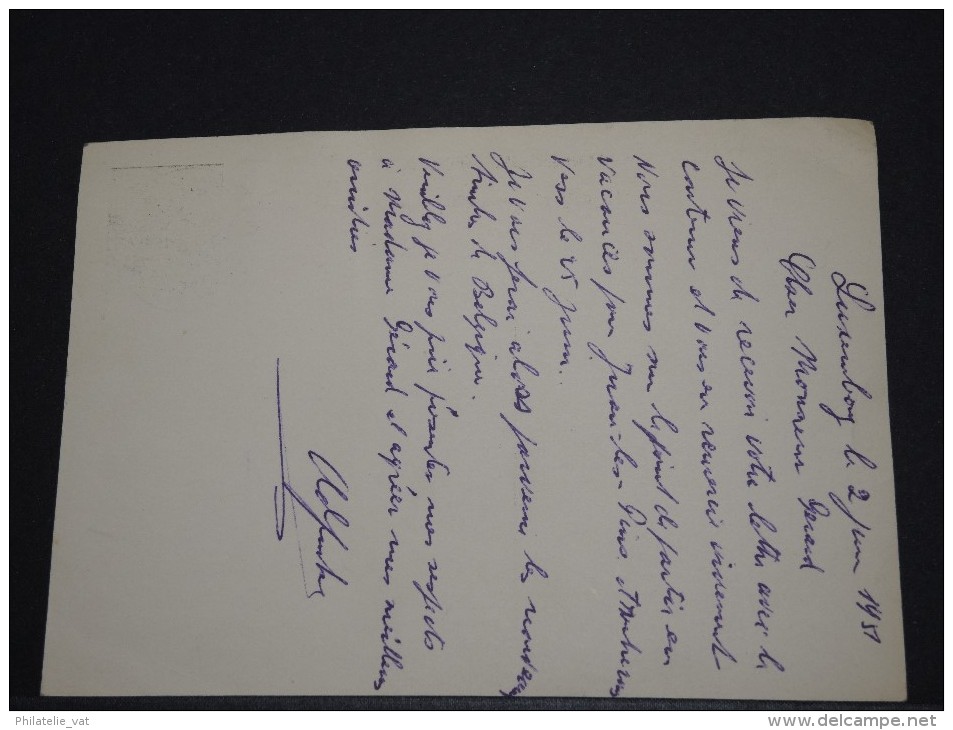 Luxembourg le 2 juin 1951
Cher Monsieur Gérard
Je viens de recevoir votre lettre avec le
contenu et vous en remercie vivement
Nous sommes sur le point de partir en
vacances pour Juan-les-Pins.
Vers le 25 juin.
Je vous ferai alors parvenir les nouveaux
timbres de Belgique.
Veuillez je vous prie présenter mes respects
à Madame Gérard et agréer mes meilleures
amitiés
Philatelie_vat
www.delcampe.net